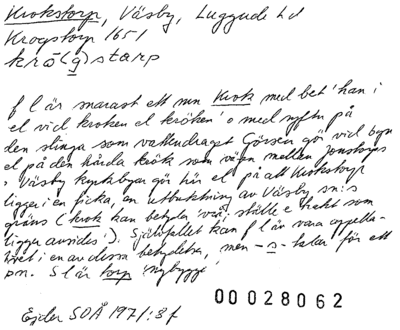 Krokstorp, Väsby, Luggude hd
Krogstorp 1651
krå(g)starp
f l är snarast ett mn Krok med bet 'han i
el vid kroken el kröken' o med syftn på
den slinga som vattendraget Görsen gör vid byn
el på den hårda krök som vägen mellan Jonstorps
o Väsby kyrkbyar gör här el på att Krokstorp
ligger i en ficka, en utbuktning av Väsby sn:s
gräns (krok kan betyda 'vrå, ställe e trakt som
ligger avsides'). Självfallet kan f l är vara appella-
tivet i en av dessa betydelser, men -s- talar för ett
pn. S l är torp 'nybygge'
Ejder SOÅ 1971:8 f
00028062